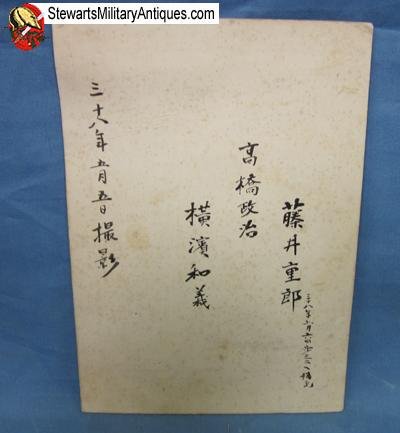 StewartsMilitaryAntiques.com
三十八年 月六日
藤井重郎
高橋政治
横濱和義
三十八年五月五日撮影